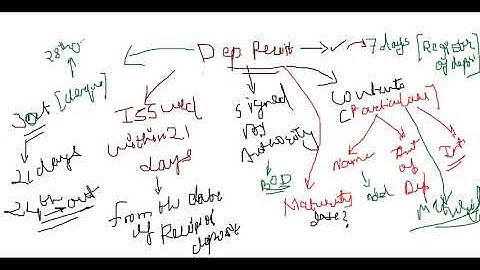 Dep Receipt
7 days [Register of deposit]
3 Oct [cheque]
21 days
24th Oct
ISSued
within 21
days
from the date
of Receipt of
deposit
signed
by
Authority
BOD
Maturity
date?
Contents
(Particulars)
Name
Add
Amt
of
Dep
Int